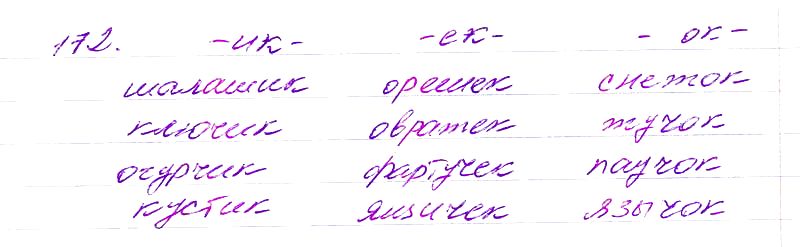 172. -ик- -ек- - ок-
шалашик орешек снежок
ключик овражек жучок
огурчик фартучек паучок
кустик ящичек язычок